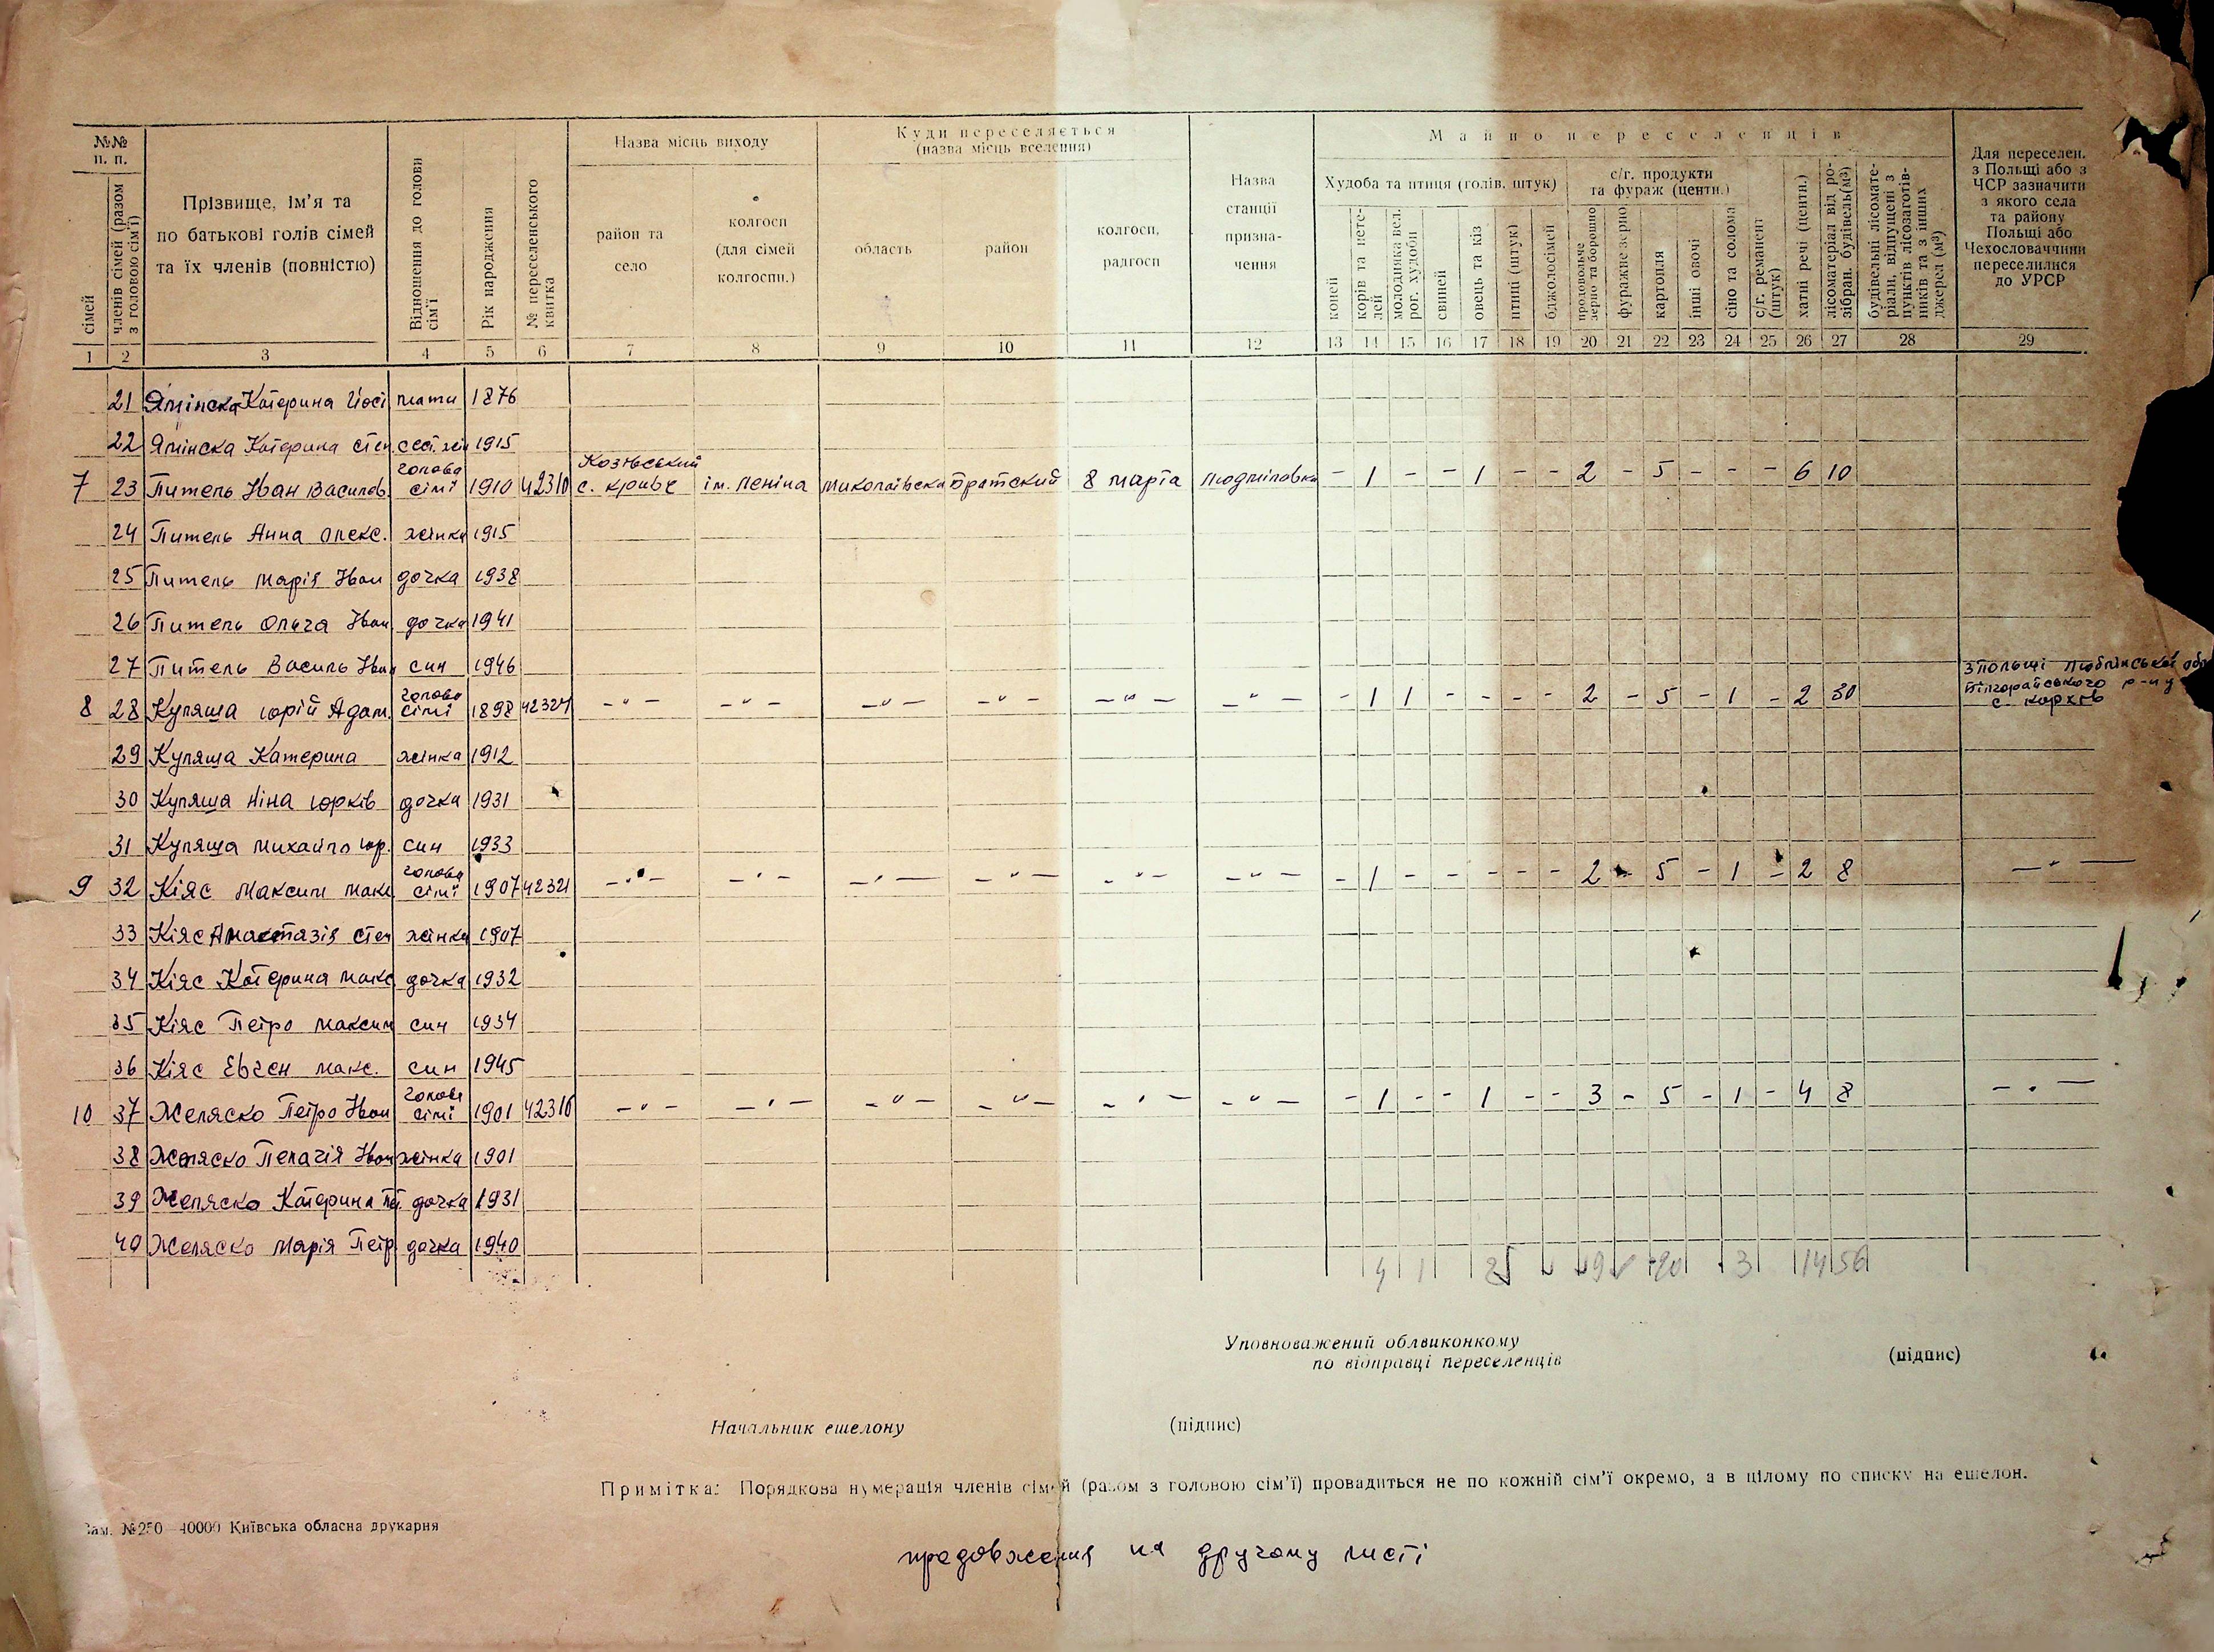 №№ п. п.
сімей
членів сімей (разом з головою сім'ї)
Прізвище, ім'я та по батькові голів сімей та їх членів (повністю)
Відношення до голови сім'ї
Рік народження
№ переселенського квитка
Назва місць виходу
район та село
колгосп (для сімей колгоспн.)
Куди переселяється (назва місць вселення)
область
район
колгосп, радгосп
Назва станції призначення
Майно переселенців
Худоба та птиця (голів, штук)
коней
корів та нетелей
молодняка вел. рог. худоби
свиней
овець та кіз
птиці (штук)
бджолосімей
с/г. продукти та фураж (центн.)
продовольче зерно та борошно
фуражне зерно
картопля
інші овочі
сіно та солома
с/г. реманент (штук)
хатні речі (центн.)
лісоматеріал від розібран. будівель (м³)
будівельні лісоматеріали, відпущені з пунктів лісозаготівників та з інших джерел (м³)
Для переселен. з Польщі або з ЧСР зазначити з якого села та району Польщі або Чехословаччини переселилися до УРСР
1 2 3 4 5 6 7 8 9 10 11 12 13 14 15 16 17 18 19 20 21 22 23 24 25 26 27 28 29
21 Ямінска Катерина Йосі мати 1876
22 Ямінска Катерина Степ. сест. 1915
7 23 Питель Іван Васильов. голова сімї 1910 42310 Козівський с. Криве ім. Леніна Миколаївска Братский 8 марта Людміловка - 1 - - 1 - - 2 - 5 - - - 6 10
24 Питель Анна Олекс. жінка 1915
25 Питель Марія Іван дочка 1938
26 Питель Ольга Іван дочка 1941
27 Питель Василь Іван син 1946
8 28 Куляша Юрій Адам. голова сімї 1898 42324 -"- -"- -"- -"- -"- -"- - 1 1 - - - - 2 - 5 - 1 - 2 30 з Польщі Люблінської обл Білгорайського р-ну с. Корхів
29 Куляша Катерина жінка 1912
30 Куляша Ніна Юрків дочка 1931
31 Куляша Михайло Юр. син 1933
9 32 Кіяс Максим Макс голова сімї 1907 42321 -"- -"- -"- -"- -"- -"- - 1 - - - - - 2 - 5 - 1 - 2 8 -"-
33 Кіяс Анастазія Степ жінка 1907
34 Кіяс Катерина Макс дочка 1932
35 Кіяс Петро Максим син 1934
36 Кіяс Евген Макс. син 1945
10 37 Желяско Петро Іван голова сімї 1901 42316 -"- -"- -"- -"- -"- -"- - 1 - - 1 - - 3 - 5 - 1 - 4 8 -"-
38 Желяско Пелагія Іван жінка 1901
39 Желяско Катерина Пет. дочка 1931
40 Желяско Марія Петр дочка 1940
4 1 2 9 20 3 14 56
Уповноважений облвиконкому
по відправці переселенців (підпис)
Начальник ешелону (підпис)
Примітка: Порядкова нумерація членів сімей (разом з головою сім'ї) провадиться не по кожній сім'ї окремо, а в цілому по списку на ешелон.
Зам. №250—40000 Київська обласна друкарня
продовження на другому листі